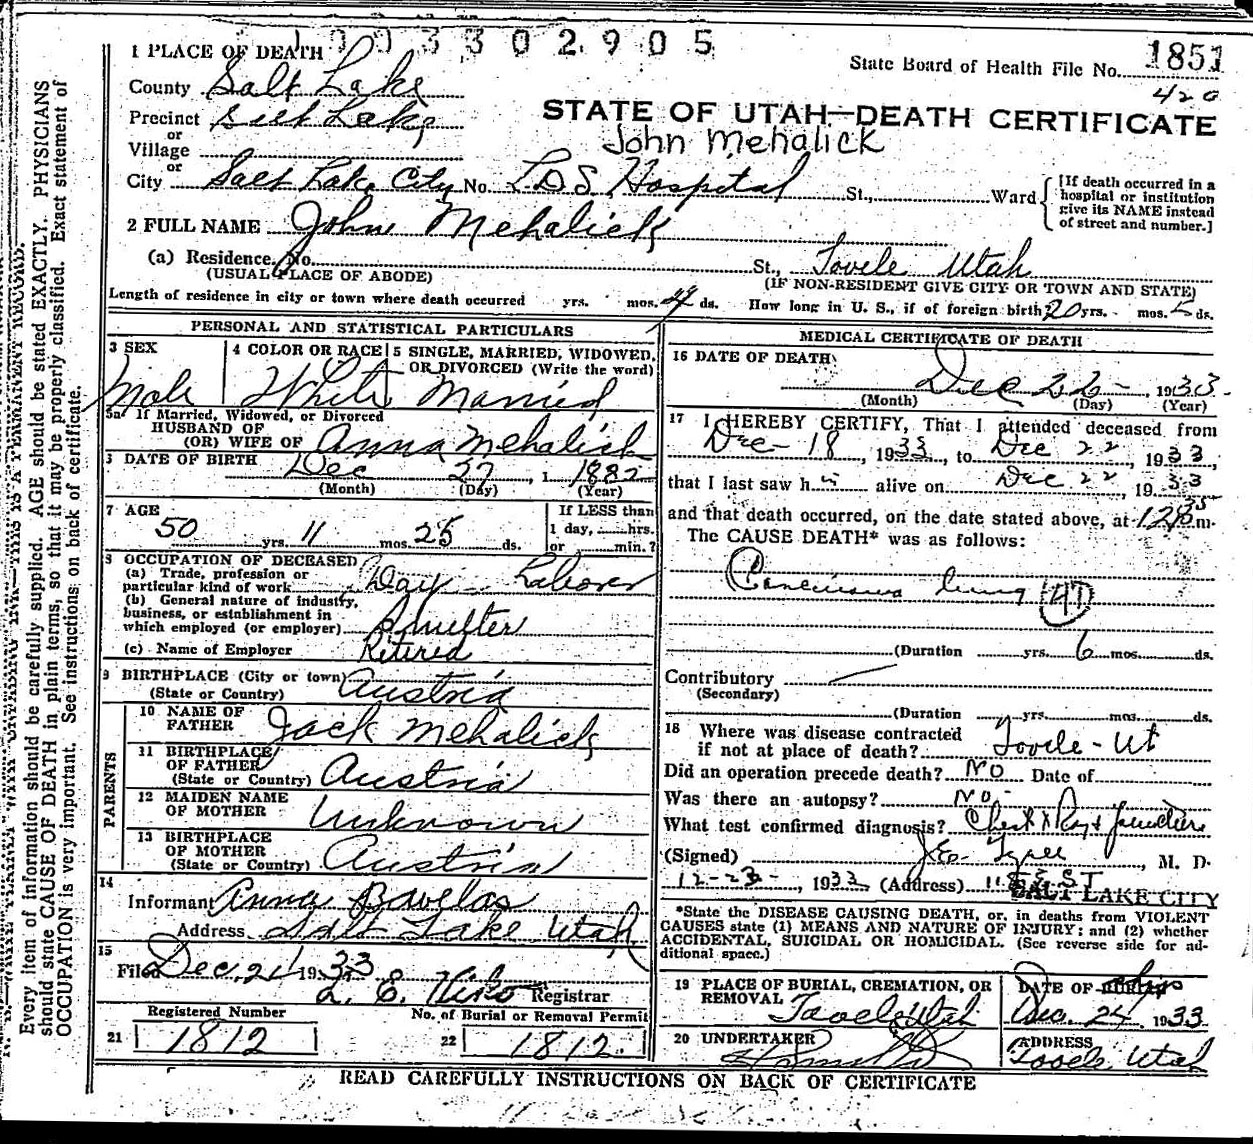 1003302905
1 PLACE OF DEATH
State Board of Health File No. 1851
420
County Salt Lake
STATE OF UTAH—DEATH CERTIFICATE
Precinct Salt Lake
or
John Mehalick
Village
or
City Salt Lake City No. L.D.S. Hospital St., Ward
[If death occurred in a
hospital or institution
give its NAME instead
of street and number.]
2 FULL NAME John Mehalick
(a) Residence. No. St., Tooele Utah
(USUAL PLACE OF ABODE) (IF NON-RESIDENT GIVE CITY OR TOWN AND STATE)
Length of residence in city or town where death occurred yrs. mos. 4 ds. How long in U. S., if of foreign birth 20 yrs. mos. ds.
PERSONAL AND STATISTICAL PARTICULARS
3 SEX
Male
4 COLOR OR RACE
White
5 SINGLE, MARRIED, WIDOWED,
OR DIVORCED (Write the word)
Married
5a If Married, Widowed, or Divorced
HUSBAND OF
(OR) WIFE OF Anna Mehalick
6 DATE OF BIRTH Dec 27, 1882
(Month) (Day) (Year)
7 AGE
50 yrs. 11 mos. 25 ds.
If LESS than
1 day, hrs.
or min.?
8 OCCUPATION OF DECEASED
(a) Trade, profession or
particular kind of work Day Laborer
(b) General nature of industry,
business, or establishment in
which employed (or employer) Smelter
(c) Name of Employer Retired
9 BIRTHPLACE (City or town)
(State or Country) Austria
PARENTS
10 NAME OF
FATHER Jack Mehalick
11 BIRTHPLACE
OF FATHER
(State or Country) Austria
12 MAIDEN NAME
OF MOTHER Unknown
13 BIRTHPLACE
OF MOTHER
(State or Country) Austria
14
Informant Anna Pavelas
Address Salt Lake Utah
15
Filed Dec. 1933
L. E. Registrar
Registered Number No. of Burial or Removal Permit
21 1812 22 1812.
MEDICAL CERTIFICATE OF DEATH
16 DATE OF DEATH
Dec 22 1933.
(Month) (Day) (Year)
17 I HEREBY CERTIFY, That I attended deceased from
Dec- 18, 1933, to Dec 22, 1933,
that I last saw h alive on Dec 22, 1933
and that death occurred, on the date stated above, at m.
The CAUSE DEATH* was as follows:
Carcinoma lung 47
(Duration yrs. 6 mos. ds.
Contributory
(Secondary)
(Duration yrs. mos. ds.
18 Where was disease contracted
if not at place of death? Tooele - Ut
Did an operation precede death? No Date of
Was there an autopsy? No-
What test confirmed diagnosis? Chest X Ray &
(Signed) J.E. Tyree, M. D.
12-23-, 1933 (Address) SALT LAKE CITY
*State the DISEASE CAUSING DEATH, or, in deaths from VIOLENT
CAUSES state (1) MEANS AND NATURE OF INJURY; and (2) whether
ACCIDENTAL, SUICIDAL OR HOMICIDAL. (See reverse side for ad-
ditional space.)
19 PLACE OF BURIAL, CREMATION, OR
REMOVAL Tooele Utah
DATE OF BURIAL
Dec. 24, 1933
20 UNDERTAKER
ADDRESS
Tooele, Utah
READ CAREFULLY INSTRUCTIONS ON BACK OF CERTIFICATE
Every item of information should be carefully supplied. AGE should be stated EXACTLY. PHYSICIANS
should state CAUSE OF DEATH in plain terms, so that it may be properly classified. Exact statement of
OCCUPATION is very important. See instructions on back of certificate.